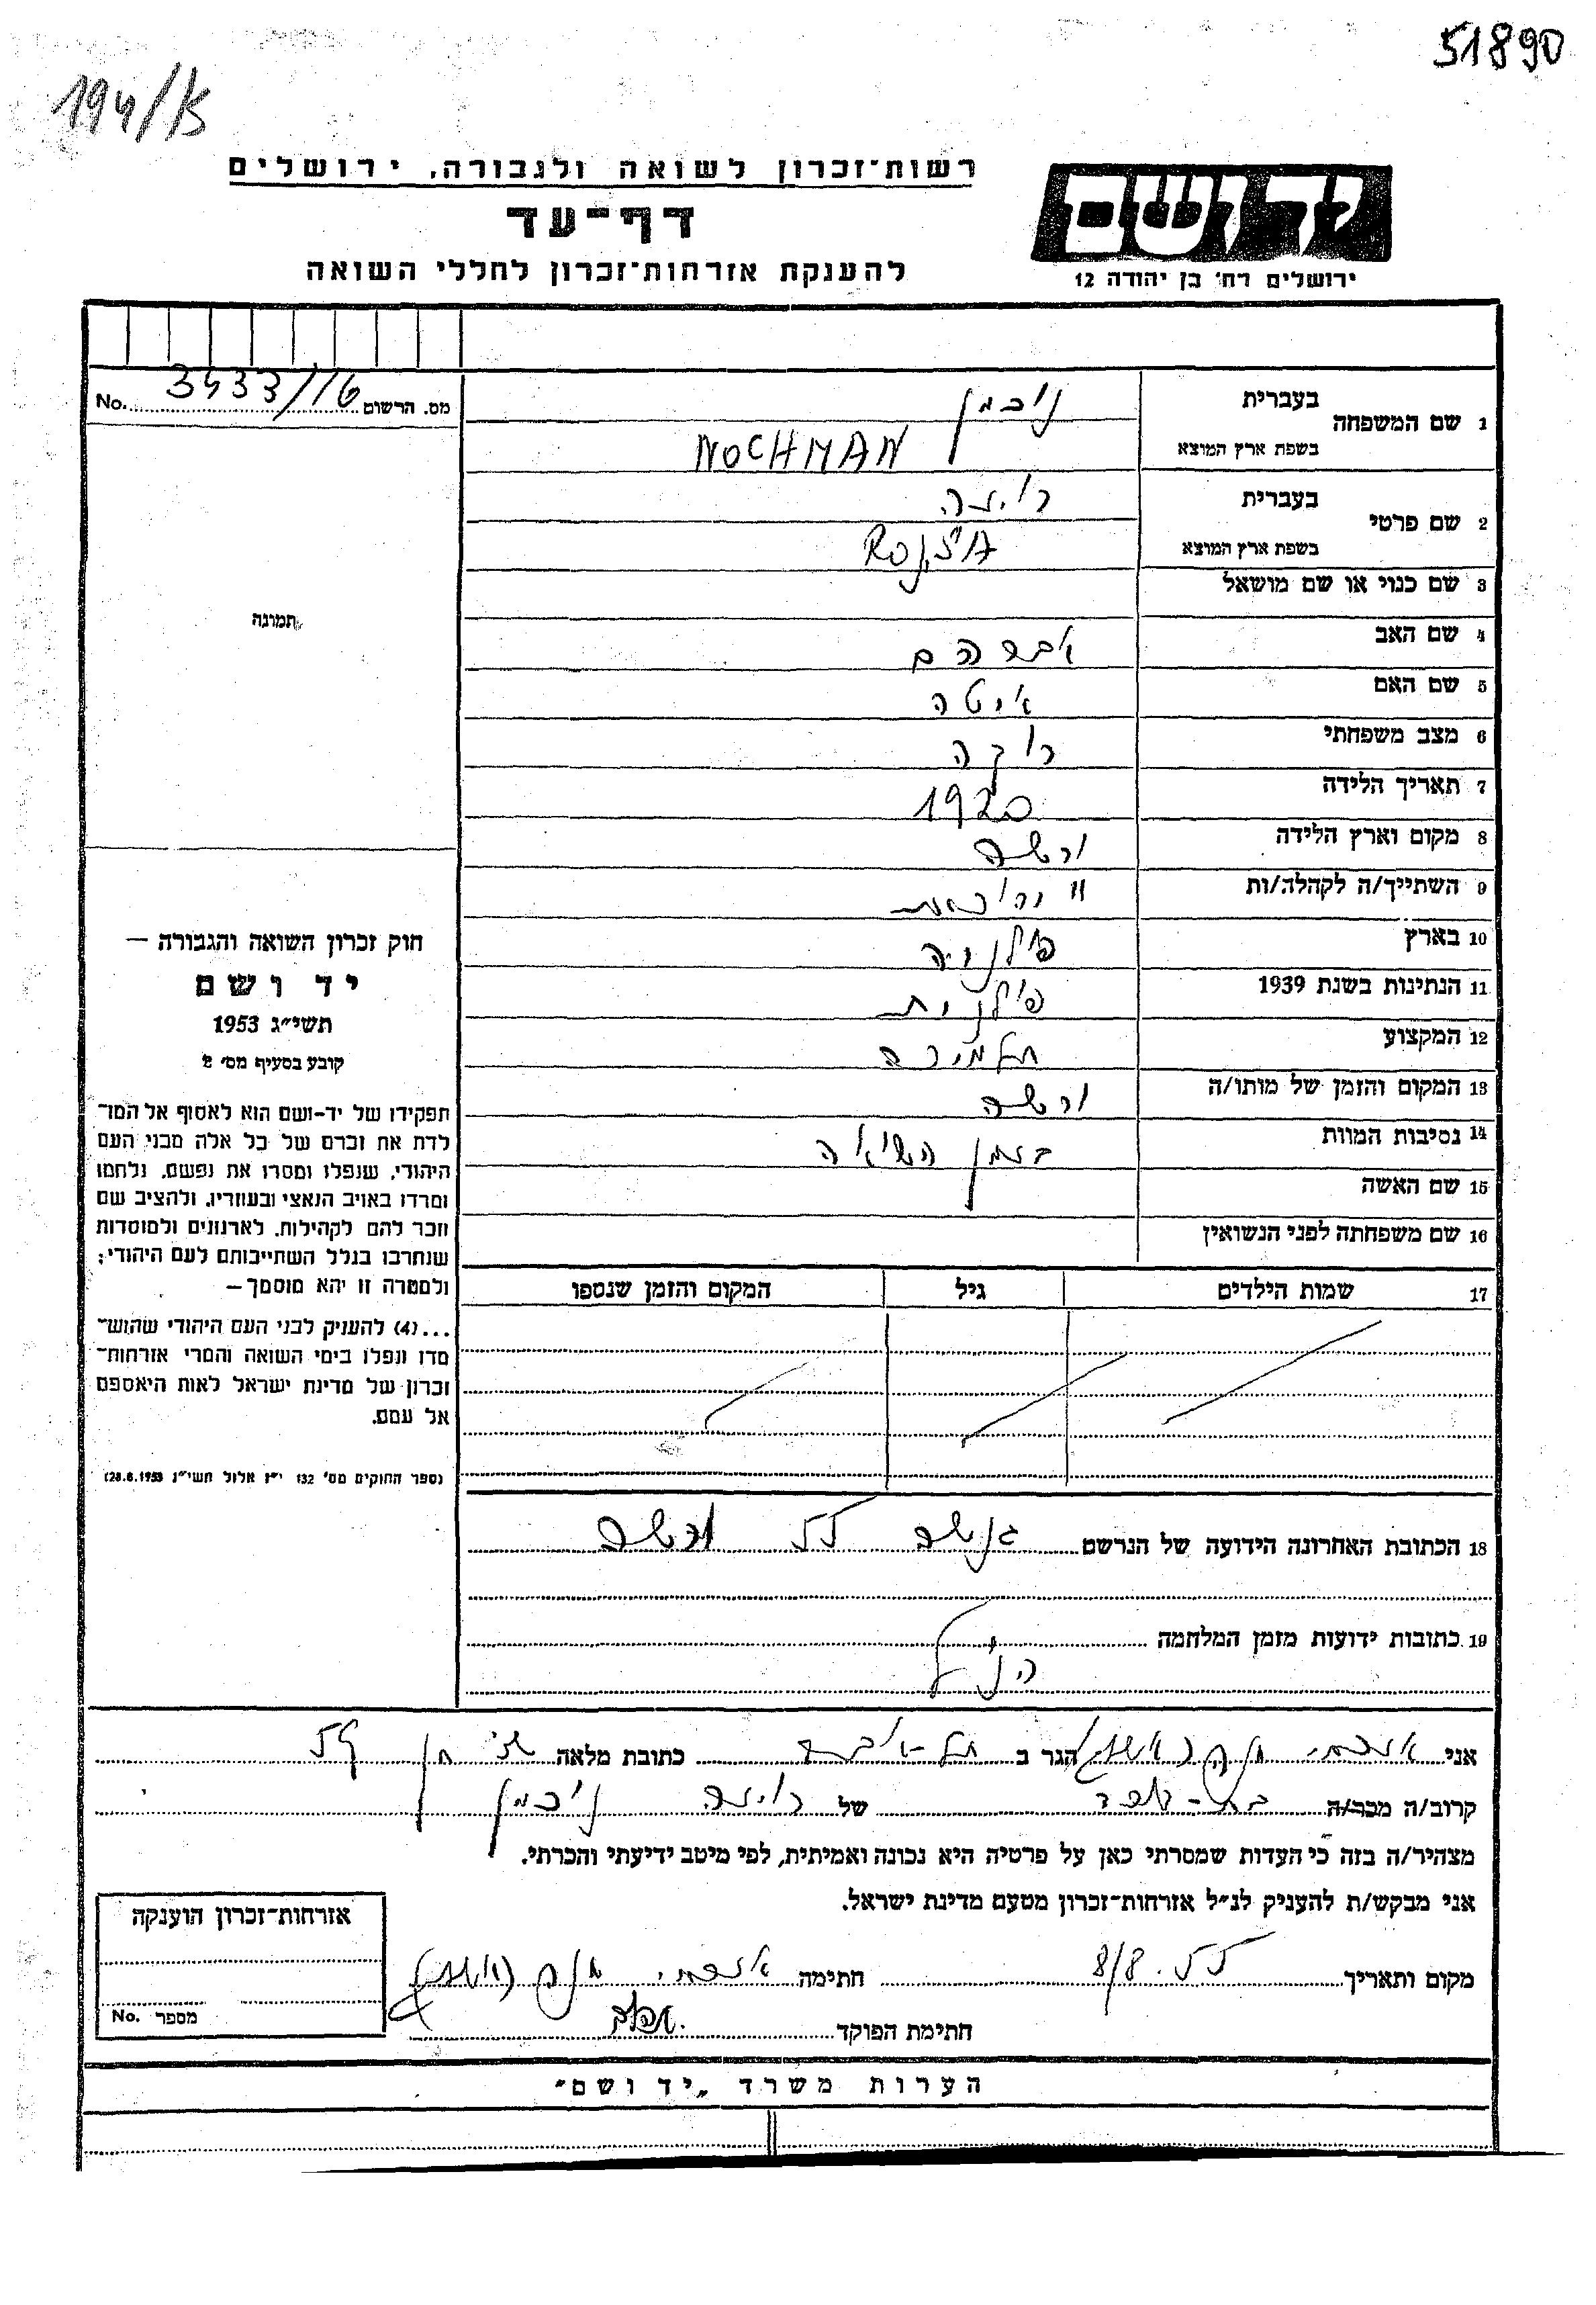 51890
194/K
רשות־זכרון לשואה ולגבורה, ירושלים
דף־עד
להענקת אזרחות־זכרון לחללי השואה
יד ושם
ירושלים רח' בן יהודה 12
מס. הרשום 3433/16 No.
1 שם המשפחה
בעברית נוכמן
בשפת ארץ המוצא NOCHMAN
2 שם פרטי
בעברית רויזה
בשפת ארץ המוצא ROJZA
3 שם כנוי או שם מושאל
4 שם האב אברהם
5 שם האם איטה
6 מצב משפחתי רוקה
7 תאריך הלידה 1920
8 מקום וארץ הלידה ורשה
9 השתייך/ה לקהלה/ות
10 בארץ פולניה
11 הנתינות בשנת 1939 פולנית
12 המקצוע תלמידה
13 המקום והזמן של מותו/ה ורשה
14 נסיבות המוות בזמן השואה
15 שם האשה
16 שם משפחתה לפני הנשואין
17 שמות הילדים גיל המקום והזמן שנספו
תמונה
חוק זכרון השואה והגבורה –
יד ושם
תשי״ג 1953
קובע בסעיף מס׳ 2
תפקידו של יד-ושם הוא לאסוף אל המו־
לדת את זכרם של כל אלה מבני העם
היהודי, שנפלו ומסרו את נפשם, נלחמו
ומרדו באויב הנאצי ובעוזריו, ולהציב שם
וזכר להם לקהילות, לארגונים ולמוסדות
שנחרבו בגלל השתייכותם לעם היהודי;
ולמטרה זו יהא מוסמך –
...(4) להעניק לבני העם היהודי שהוש־
מדו ונפלו בימי השואה והמרי אזרחות־
זכרון של מדינת ישראל לאות היאספם
אל עמם.
(ספר החוקים מס׳ 132 י״ז אלול תשי״ג 28.8.1953)
18 הכתובת האחרונה הידועה של הנרשם גנשה 55 ורשה
19 כתובות ידועות מזמן המלחמה
הנ״ל
אני הגר ב תל-אביב כתובת מלאה 54
קרוב/ה מכר/ה של רויזה נוכמן
מצהיר/ה בזה כי העדות שמסרתי כאן על פרטיה היא נכונה ואמיתית, לפי מיטב ידיעתי והכרתי.
אני מבקש/ת להעניק לנ״ל אזרחות־זכרון מטעם מדינת ישראל.
מקום ותאריך 8/8.55 חתימה
חתימת הפוקד
אזרחות־זכרון הוענקה
מספר No.
הערות משרד „יד ושם״